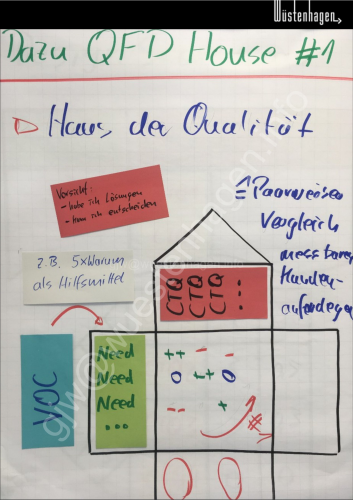 Wüstenhagen
Dazu QFD House #1
Haus der Qualität
Vorsicht:
- habe ich Lösungen
- kann ich entscheiden
z.B. 5xWarum
als Hilfsmittel
= Paarweiser
Vergleich
messbarer
Kunden-
anforderungen
CTQ
CTQ
CTQ
...
VOC
Need
Need
Need
...
++ - -
0 ++ 0
- - +
#
0 0